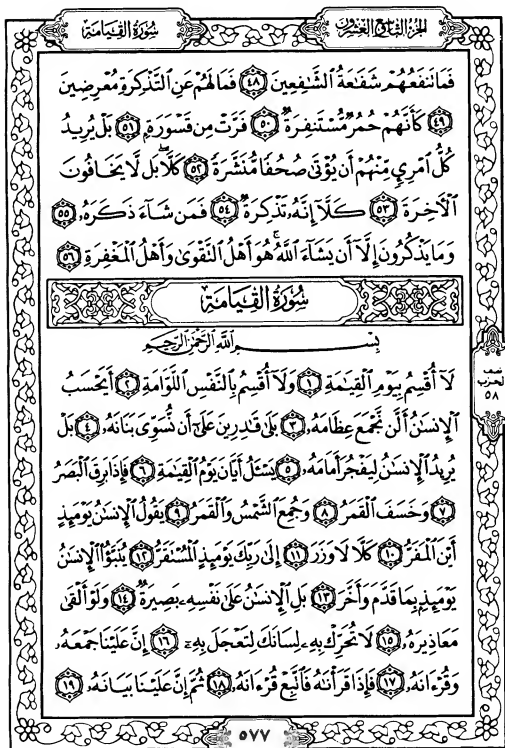 الجزء التاسع والعشرون
سُورَةُ القِيَامَة
فَمَا تَنفَعُهُمْ شَفَاعَةُ الشَّافِعِينَ ٤٨ فَمَا لَهُمْ عَنِ التَّذْكِرَةِ مُعْرِضِينَ
٤٩ كَأَنَّهُمْ حُمُرٌ مُّسْتَنفِرَةٌ ٥٠ فَرَّتْ مِن قَسْوَرَةٍ ٥١ بَلْ يُرِيدُ
كُلُّ ٱمْرِئٍ مِّنْهُمْ أَن يُؤْتَىٰ صُحُفًا مُّنَشَّرَةً ٥٢ كَلَّا ۖ بَل لَّا يَخَافُونَ
ٱلْأَخِرَةَ ٥٣ كَلَّآ إِنَّهُۥ تَذْكِرَةٌ ٥٤ فَمَن شَآءَ ذَكَرَهُۥ ٥٥
وَمَا يَذْكُرُونَ إِلَّآ أَن يَشَآءَ ٱللَّهُ ۚ هُوَ أَهْلُ ٱلتَّقْوَىٰ وَأَهْلُ ٱلْمَغْفِرَةِ ٥٦
سُورَةُ القِيَامَة
بِسْمِ ٱللَّهِ ٱلرَّحْمَٰنِ ٱلرَّحِيمِ
لَآ أُقْسِمُ بِيَوْمِ ٱلْقِيَٰمَةِ ١ وَلَآ أُقْسِمُ بِٱلنَّفْسِ ٱللَّوَّامَةِ ٢ أَيَحْسَبُ
ٱلْإِنسَٰنُ أَلَّن نَّجْمَعَ عِظَامَهُۥ ٣ بَلَىٰ قَٰدِرِينَ عَلَىٰٓ أَن نُّسَوِّىَ بَنَانَهُۥ ٤ بَلْ
يُرِيدُ ٱلْإِنسَٰنُ لِيَفْجُرَ أَمَامَهُۥ ٥ يَسْـَٔلُ أَيَّانَ يَوْمُ ٱلْقِيَٰمَةِ ٦ فَإِذَا بَرِقَ ٱلْبَصَرُ
٧ وَخَسَفَ ٱلْقَمَرُ ٨ وَجُمِعَ ٱلشَّمْسُ وَٱلْقَمَرُ ٩ يَقُولُ ٱلْإِنسَٰنُ يَوْمَئِذٍ
أَيْنَ ٱلْمَفَرُّ ١٠ كَلَّا لَا وَزَرَ ١١ إِلَىٰ رَبِّكَ يَوْمَئِذٍ ٱلْمُسْتَقَرُّ ١٢ يُنَبَّؤُا۟ ٱلْإِنسَٰنُ
يَوْمَئِذٍۭ بِمَا قَدَّمَ وَأَخَّرَ ١٣ بَلِ ٱلْإِنسَٰنُ عَلَىٰ نَفْسِهِۦ بَصِيرَةٌ ١٤ وَلَوْ أَلْقَىٰ
مَعَاذِيرَهُۥ ١٥ لَا تُحَرِّكْ بِهِۦ لِسَانَكَ لِتَعْجَلَ بِهِۦٓ ١٦ إِنَّ عَلَيْنَا جَمْعَهُۥ
وَقُرْءَانَهُۥ ١٧ فَإِذَا قَرَأْنَٰهُ فَٱتَّبِعْ قُرْءَانَهُۥ ١٨ ثُمَّ إِنَّ عَلَيْنَا بَيَانَهُۥ ١٩
نصف
الحزب
٥٨
٥٧٧